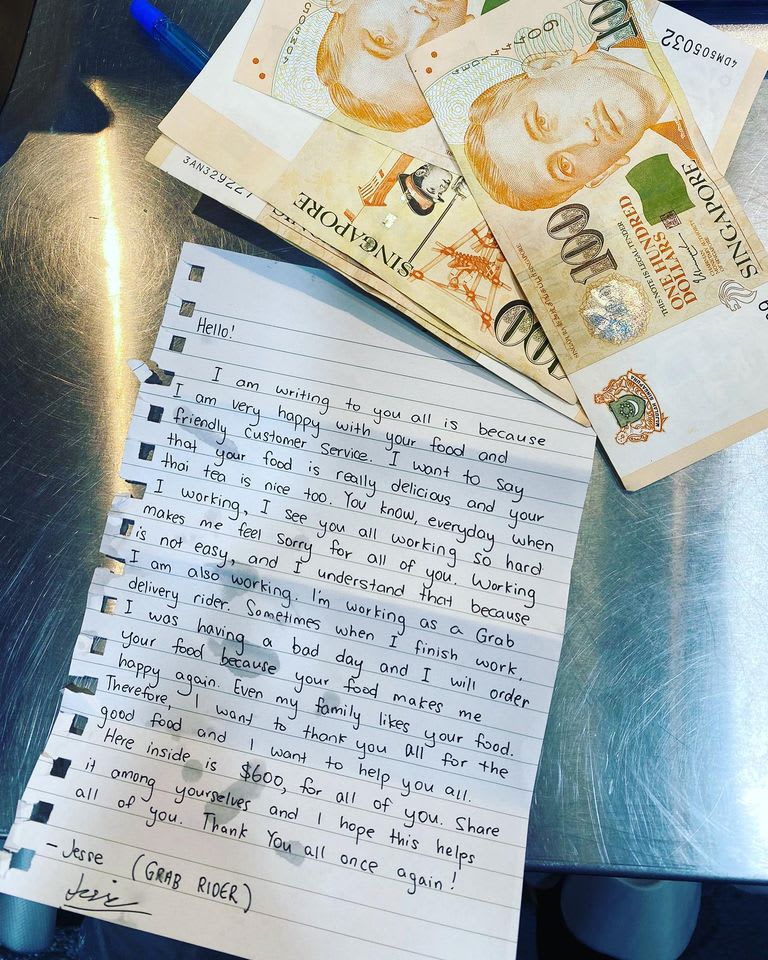 4DM505032
100
SINGAPORE
ONE HUNDRED
DOLLARS
THIS NOTE IS LEGAL TENDER
100
SINGAPORE
3AN32922
SINGAPORE
100
Hello!
I am writing to you all is because
I am very happy with your food and
friendly Customer Service. I want to say
that your food is really delicious and your
thai tea is nice too. You know, everyday when
I working, I see you all working so hard
makes me feel sorry for all of you. Working
is not easy, and I understand that because
I am also working. I'm working as a Grab
delivery rider. Sometimes when I finish work,
I was having a bad day and I will order
your food because your food makes me
happy again. Even my family likes your food.
Therefore, I want to thank you all for the
good food and I want to help you all.
Here inside is $600, for all of you. Share
it among yourselves and I hope this helps
all of you. Thank You all once again!
- Jesse (GRAB RIDER)